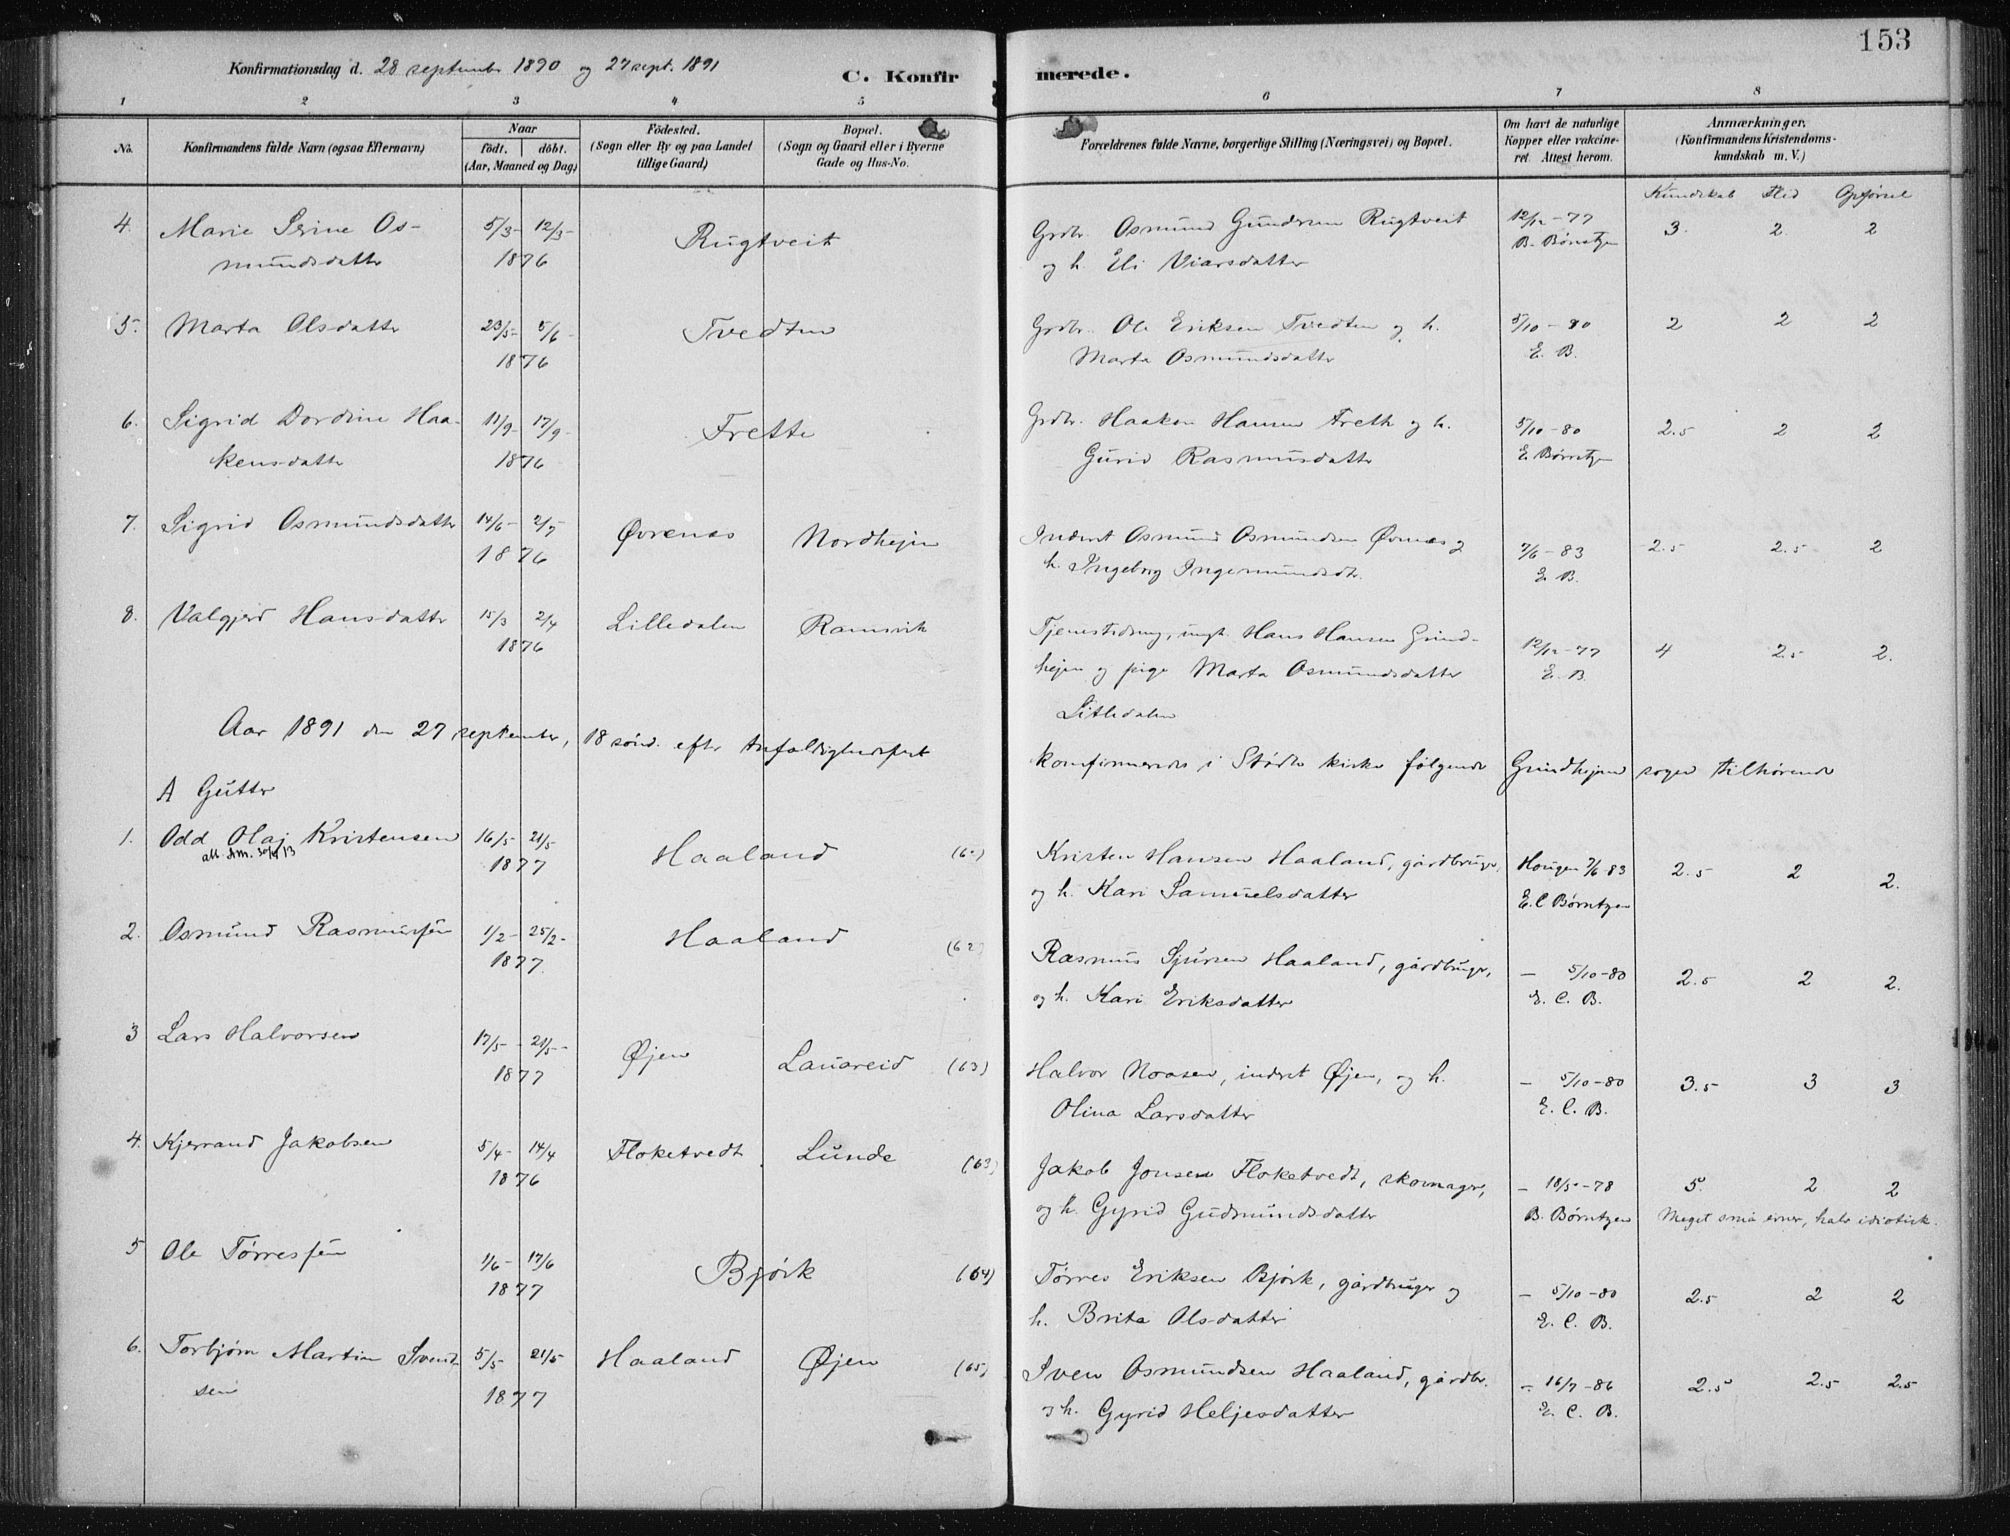 153
Konfirmationsdag d. 28 september 1890 og 27 sept. 1891
C. Konfirmerede.
1 2 3 4 5 6 7 8
No. Konfirmandens fulde Navn (ogsaa Efternavn) Naar födt. döbt. (Aar, Maaned og Dag) Födested. (Sogn eller By og paa Landet tillige Gaard) Bopæl. (Sogn og Gaard eller i Byerne Gade og Hus-No. Forældrenes fulde Navne, borgerlige Stilling (Næringsvei) og Bopæl. Om havt de naturlige Kopper eller vakcineret. Attest herom. Anmærkninger. (Konfirmandens Kristendomskundskab m. V.)
Kundskab Flid Opførsel
4. Marie Serine Os- 5/3- 12/3- Rugtveit Grdbr. Osmund Gundersen Rugtveit 12/12-77 3. 2. 2
mundsdatter 1876 og h. Eli Viarsdatter B. Børntzen
5. Marta Olsdatter 23/5- 5/6- Tvedten Grdbr. Ole Eriksen Tvedten og h. 5/10-80 2 2 2
1876 Marta Osmundsdatter E. B.
6. Sigrid Dordine Haa- 11/9- 17/9- Frette Grdbr. Haakon Hansen Freth og h. 5/10-80 2.5 2 2
kensdatter 1876 Gurid Rasmusdatter E. Børntzen
7. Sigrid Osmundsdatter 14/6- 2/7- Øvrenes Nordhejen Inderst Osmund Osmundsen Øvrenes og 7/6-83 2.5 2.5 2
1876 h. Ingeborg Ingemundsdt. E. B.
8. Valgjerd Hansdatter 15/3 2/4 Lilledalen Ramsvik Tjenestedreng, ungk. Hans Hansen Grind- 12/12-77 4 2.5 2.
1876 hejen og pige Marta Osmundsdatter E. B.
Litledalen
Aar 1891 den 27 september, 18 sønd. efter trefoldighedsfest konfirmeredes i Stødle kirke følgende Grindhejens sogn tilhørende
A Gutter
1. Odd Olaj Kristensen 16/5- 21/5- Haaland Kristen Hansen Haaland, gårdbruger, Hougen 7/6 83 2.5 2 2.
att. Am. 1877 og h. Kari Samuelsdatter E. C Børntzen
2. Osmund Rasmussen 1/2- 25/2- Haaland (62) Rasmus Sjursen Haaland, gårdbruger, - 5/10-80 2.5 2 2.
1877 og h. Kari Eriksdatter E. C. B.
3 Lars Halvorsen 17/5- 21/5- Øjen Lauareid (63) Halvor Noasen, inderst Øjen, og h. - 5/10-80 3.5 3 3
1877 Olina Larsdatter E. C. B.
4. Kjerrand Jakobsen 5/4- 14/4 Floketvedt Lunde (63) Jakob Jonsen Floketvedt, skomager, - 18/5-78 5. 2 2
1876 og h. Gyrid Gudmundsdatter B. Børntzen Meget små evner, halv idiotisk.
5 Ole Tørressen 1/6- 17/6 Bjørk (64) Tørres Eriksen Bjørk, gårdbruger og - 5/10-80 2.5 2 2
1877 h. Brita Olsdatter E. C. B.
6. Torbjørn Martin Svend- 5/5- 21/5 Haaland Øjen (65) Sven Osmundsen Haaland, gårdbr. - 16/7-86 2.5 2.5 2.5
sen 1877 og h. Gyrid Heljesdatter E. C. B.